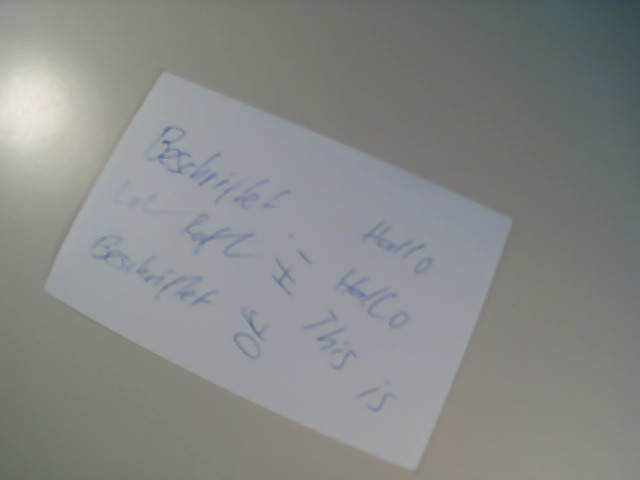 Beschriftet Hallo
Lol Rofl I Hallo
Beschriftet This is